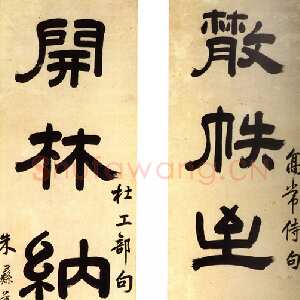 散帙至
高常侍句
開林納
杜工部句
朱彝
shufawang.cn